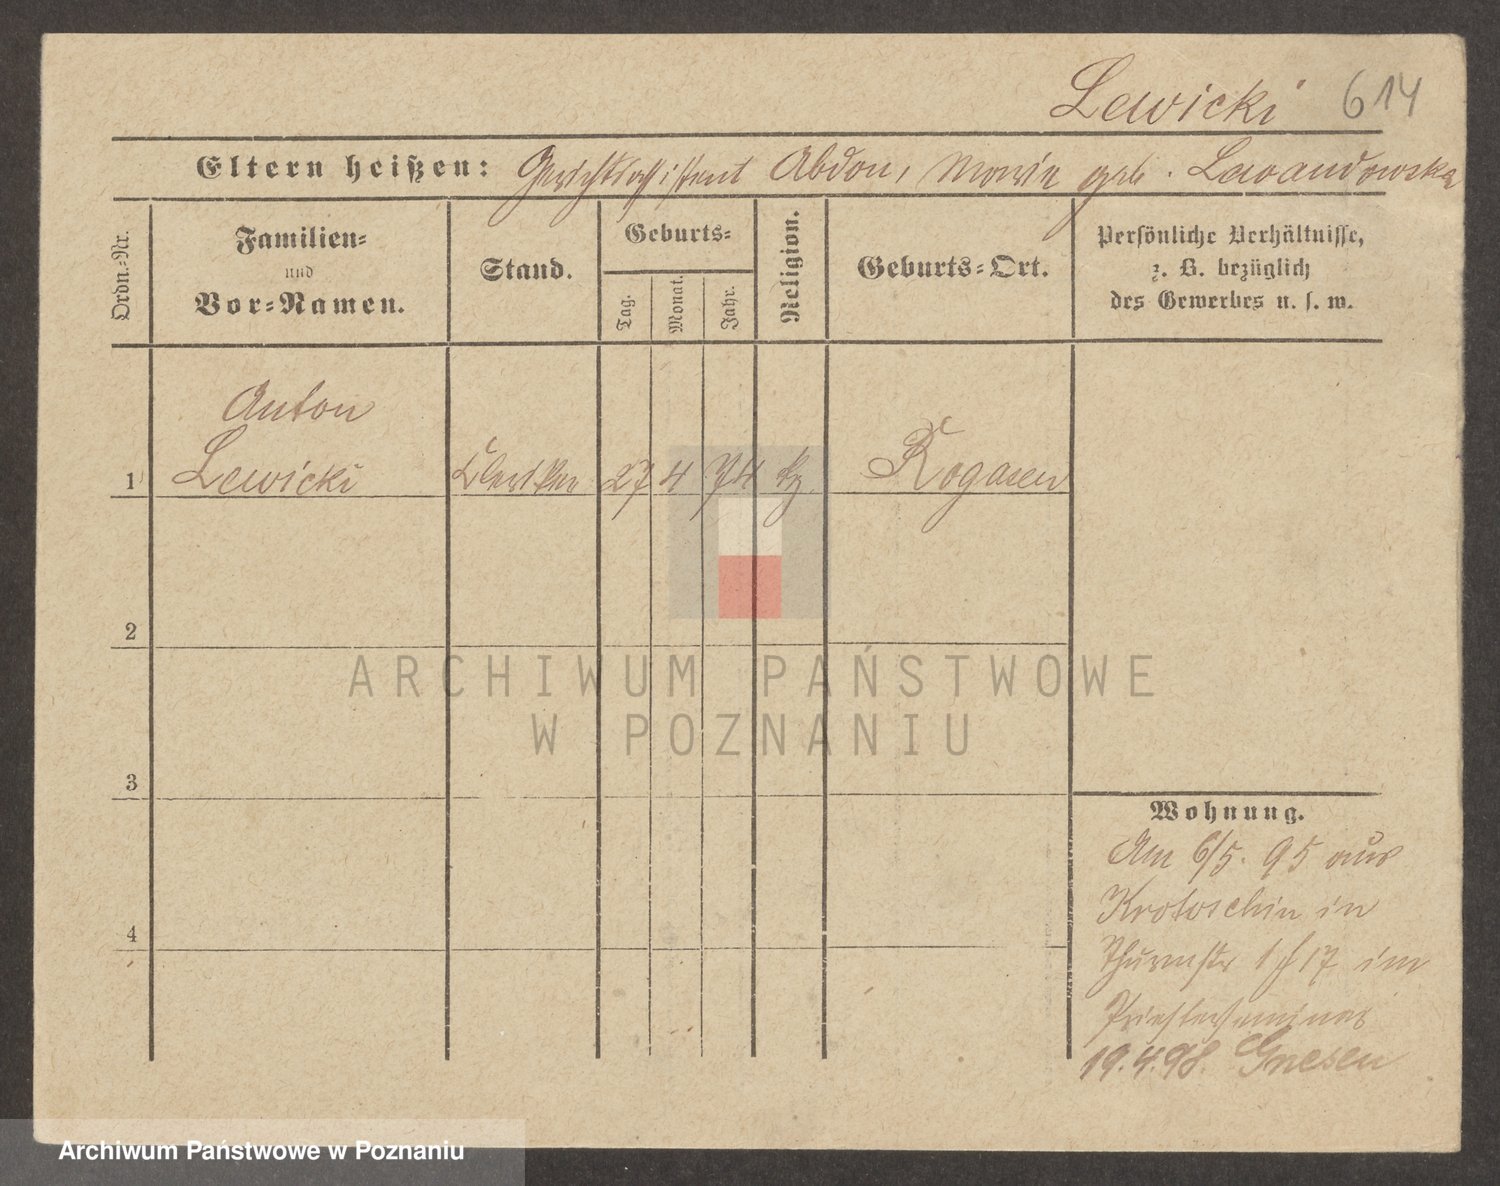 Lewicki 614
Eltern heißen: Gerichtsassistent Abdon, Marie geb. Lewandowska
Ordn.-Nr.
Familien-
und
Vor-Namen.
Stand.
Geburts-
Tag.
Monat.
Jahr.
Religion.
Geburts-Ort.
Persönliche Verhältnisse,
z. B. bezüglich
des Gewerbes u. s. w.
Anton
1 Lewicki Kleriker 27 4 74 kg. Rogasen
2
3
4
Wohnung.
Am 6/5. 95 aus
Krotoschin in
Thurmstr 17 im
Priesterseminar
19.4.98. Gnesen
ARCHIWUM PAŃSTWOWE
W POZNANIU
Archiwum Państwowe w Poznaniu